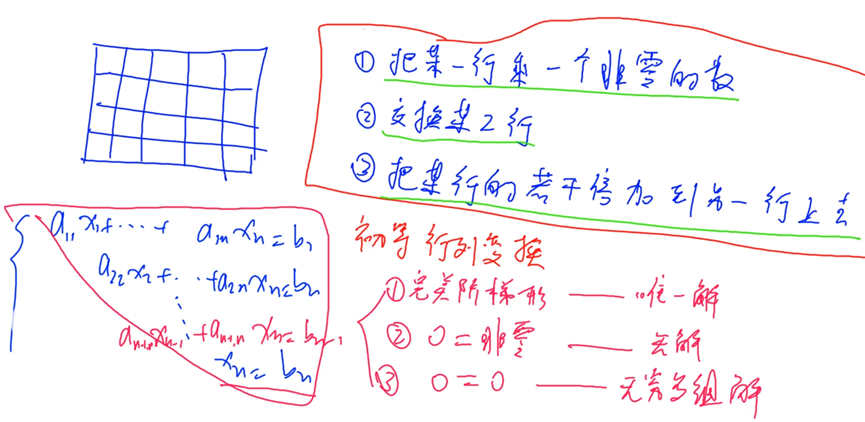 ① 把某一行乘一个非零的数
② 交换某2行
③ 把某行的若干倍加到另一行上去
a₁₁x₁+···+ a₁ₙxₙ=b₁
a₂₂x₂+···+a₂ₙxₙ=bₙ
aₙ₋₁,ₙ₋₁xₙ₋₁+aₙ₋₁,ₙxₙ=bₙ₋₁
xₙ=bₙ
初等行列变换
①完美阶梯形 —— 唯一解
② 0=非零 —— 无解
③ 0=0 —— 无穷多组解